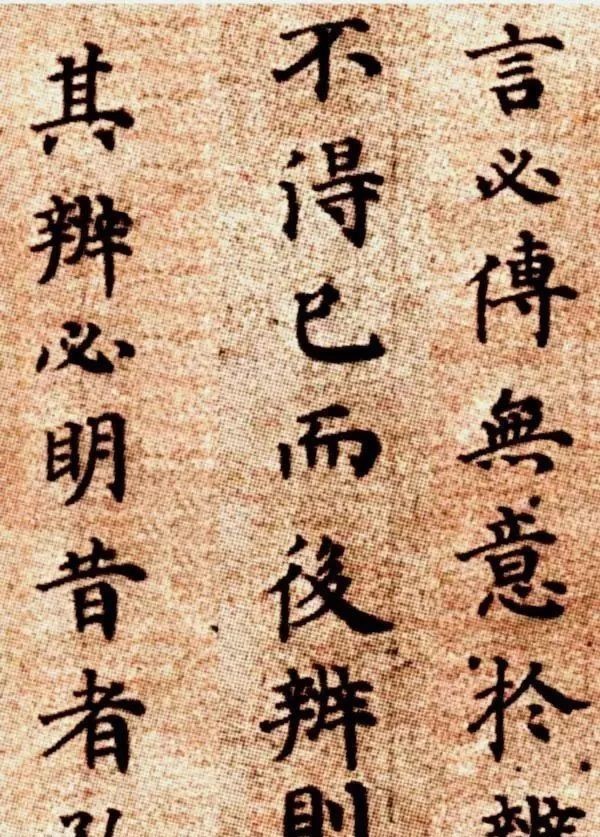 言必傳無意於辨
不得已而後辨則
其辨必明昔者